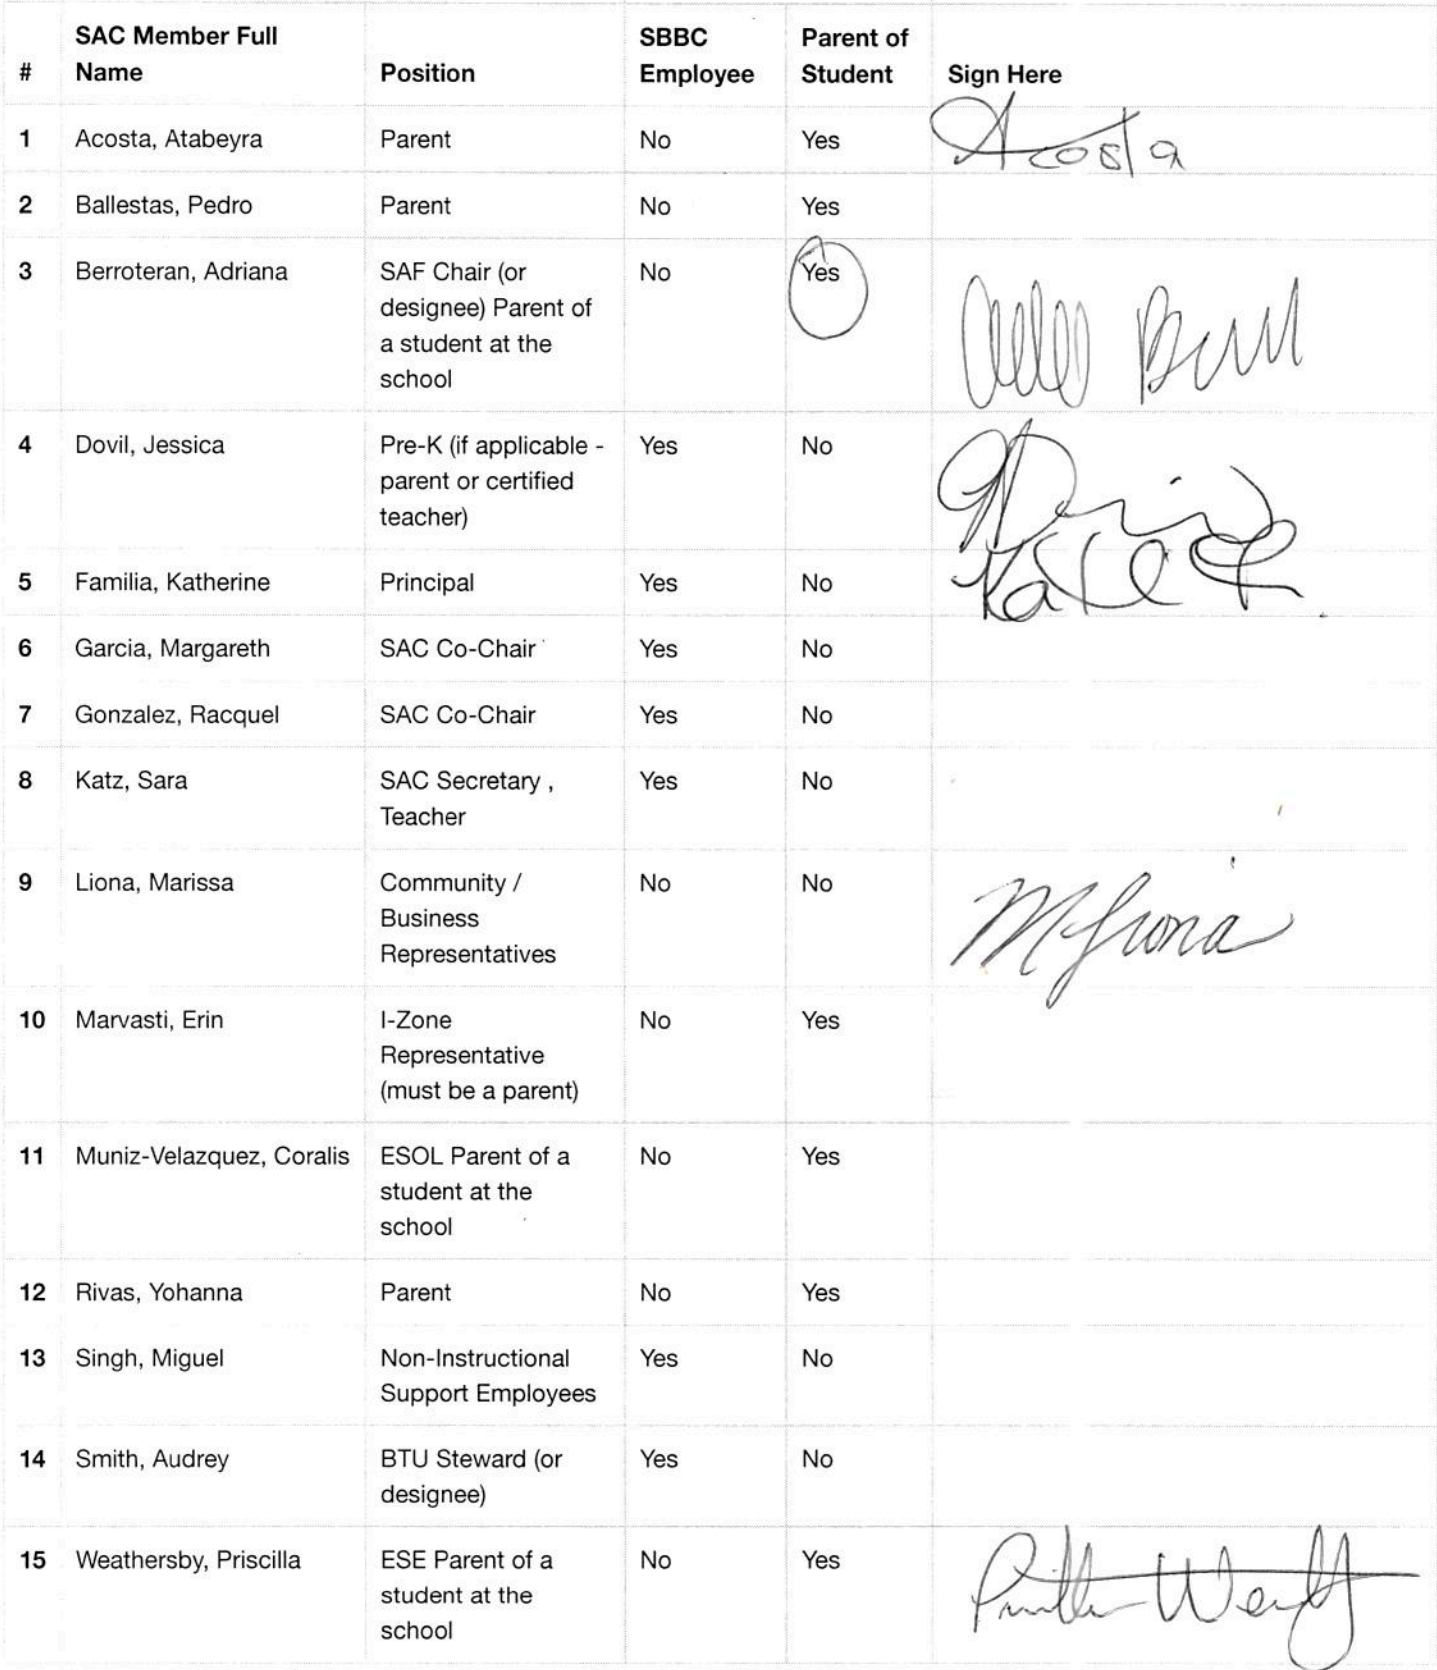 # SAC Member Full Name Position SBBC Employee Parent of Student Sign Here
1 Acosta, Atabeyra Parent No Yes Acosta
2 Ballestas, Pedro Parent No Yes
3 Berroteran, Adriana SAF Chair (or No Yes
designee) Parent of
a student at the
school
4 Dovil, Jessica Pre-K (if applicable - Yes No
parent or certified
teacher)
5 Familia, Katherine Principal Yes No
6 Garcia, Margareth SAC Co-Chair Yes No
7 Gonzalez, Racquel SAC Co-Chair Yes No
8 Katz, Sara SAC Secretary , Yes No
Teacher
9 Liona, Marissa Community / No No M Liona
Business
Representatives
10 Marvasti, Erin I-Zone No Yes
Representative
(must be a parent)
11 Muniz-Velazquez, Coralis ESOL Parent of a No Yes
student at the
school
12 Rivas, Yohanna Parent No Yes
13 Singh, Miguel Non-Instructional Yes No
Support Employees
14 Smith, Audrey BTU Steward (or Yes No
designee)
15 Weathersby, Priscilla ESE Parent of a No Yes
student at the
school